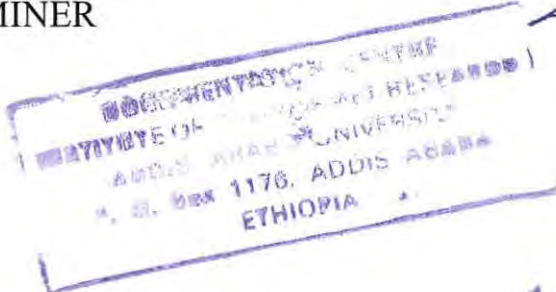 MINER
DOCUMENTATION CENTRE
INSTITUTE OF RESEARCH
ADDIS ABABA UNIVERSITY
P. O. Box 1176, ADDIS ABABA
ETHIOPIA